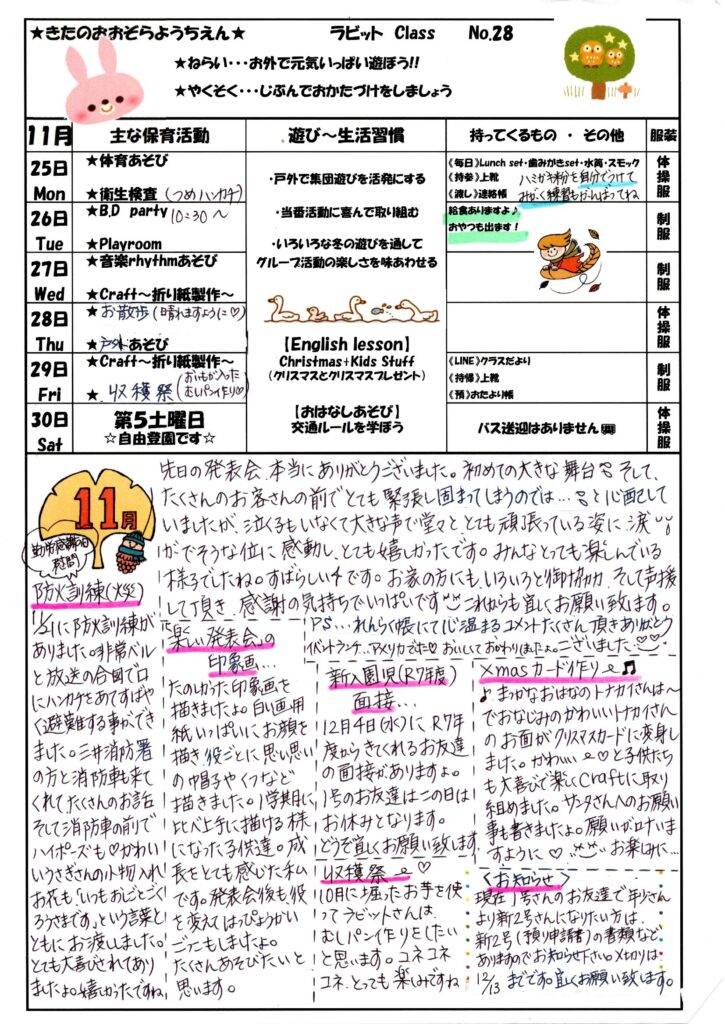 ★きたのおおぞらようちえん★ ラビット Class No.28
★ねらい・・・お外で元気いっぱい遊ぼう!!
★やくそく・・・じぶんでおかたづけをしましょう
11月 主な保育活動 遊び～生活習慣 持ってくるもの ・ その他 服装
25日 Mon
★体育あそび
★衛生検査(つめハンカチ)
26日 Tue
★B.D party 10:30～
★Playroom
27日 Wed
★音楽rhythmあそび
★Craft～折り紙製作～
28日 Thu
★お散歩(晴れますように♡)
★戸外あそび
29日 Fri
★Craft～折り紙製作～
★収穫祭(おいもが入ったむしパン作り♡)
30日 Sat
第5土曜日
☆自由登園です☆
・戸外で集団遊びを活発にする
・当番活動に喜んで取り組む
・いろいろな冬の遊びを通して
グループ活動の楽しさを味あわせる
【English lesson】
Christmas+Kids Stuff
(クリスマスとクリスマスプレゼント)
【おはなしあそび】
交通ルールを学ぼう
《毎日》Lunch set・歯みがきset・水筒・スモック
《持参》上靴 ハミガキ粉を自分でつけて
《渡し》連絡帳 みがく練習もがんばってね
給食ありますよ♪
おやつも出ます!
《LINE》クラスだより
《持帰》上靴
《預》おたより帳
バス送迎はありません
体操服
制服
制服
体操服
制服
体操服
11月
勤労感謝の日慰問
先日の発表会、本当にありがとうございました。初めての大きな舞台 そして、
たくさんのお客さんの前でとても緊張し固まてしまうのでは… と心配して
いましたが、泣く子もいなくて大きな声で堂々と、とても頑張っている姿に涙
がでそうな位に感動し、とても嬉しかったです。みんなとっても楽しんでいる
様子でしたね。すばらしい子です。お家の方にも、いろいろと御協力、そして声援
して頂き、感謝の気持ちでいっぱいです これからも宜しくお願い致します。
PS...れんらく帳にて心温まるコメントたくさん頂きありがとう
ございました♡♡
イベントランチ...アメリカでした♡おいしくておかわりしましたよ。
防火訓練(火災)
11/21に防火訓練が
ありました。非常ベル
と放送の合図で口
にハンカチをあてすばや
く避難する事ができ
ました。三井消防署
の方と消防車も来て
くれてたくさんのお話
そして消防車の前で
ハイポーズも♡かわい
いうさぎさんの小物入れ
お花も「いつもおしごとご
くろうさまです」という言葉と
ともにお渡ししました。
とても大喜びされてあり
ましたよ。嬉しかったですね
「楽しい発表会」の
印象画…
たのしかった印象画を
描きましたよ。白い画用
紙いっぱいにお顔を
描き役ごとに思い思い
の帽子やくつなど
描きました。1学期に
比べ上手に描ける様
になった子供達。成
長をとても感じた私
です。発表会後も役
を変えてはっぴょうかい
ごっこもしましたよ。
たくさんあそびたいと
思います。
新入園児(R7年度)
面接…
12月4日(水)に R7年
度からきてくれるお友達
の面接がありますよ。
1号のお友達はこの日は
お休みとなります。
どうぞ宜しくお願い致します
収穫祭 ♡
10月に掘ったお芋を使
ってラビットさんは、
むしパン作りをしたい
と思います。コネコネ
コネ、とっても楽しみですね
Xmasカード作り♫
♪まっかなおはなのトナカイさんは～
でおなじみのかわいいトナカイさん
のお面がクリスマスカードに変身し
ました。かわいい ♡と子供たち
も大喜びで楽しくCraftに取り
組めました。サンタさんへのお願い
事も書きましたよ。願いが叶いま
すように♡ お楽しみに…
〈お知らせ〉
現在1号さんのお友達で年少さん
より新2号さんになりたい方は、
新2号(預り申請書)の書類など
ありますのでお知らせ下さい。〆切りは
12/13 までです。宜しくお願い致します。